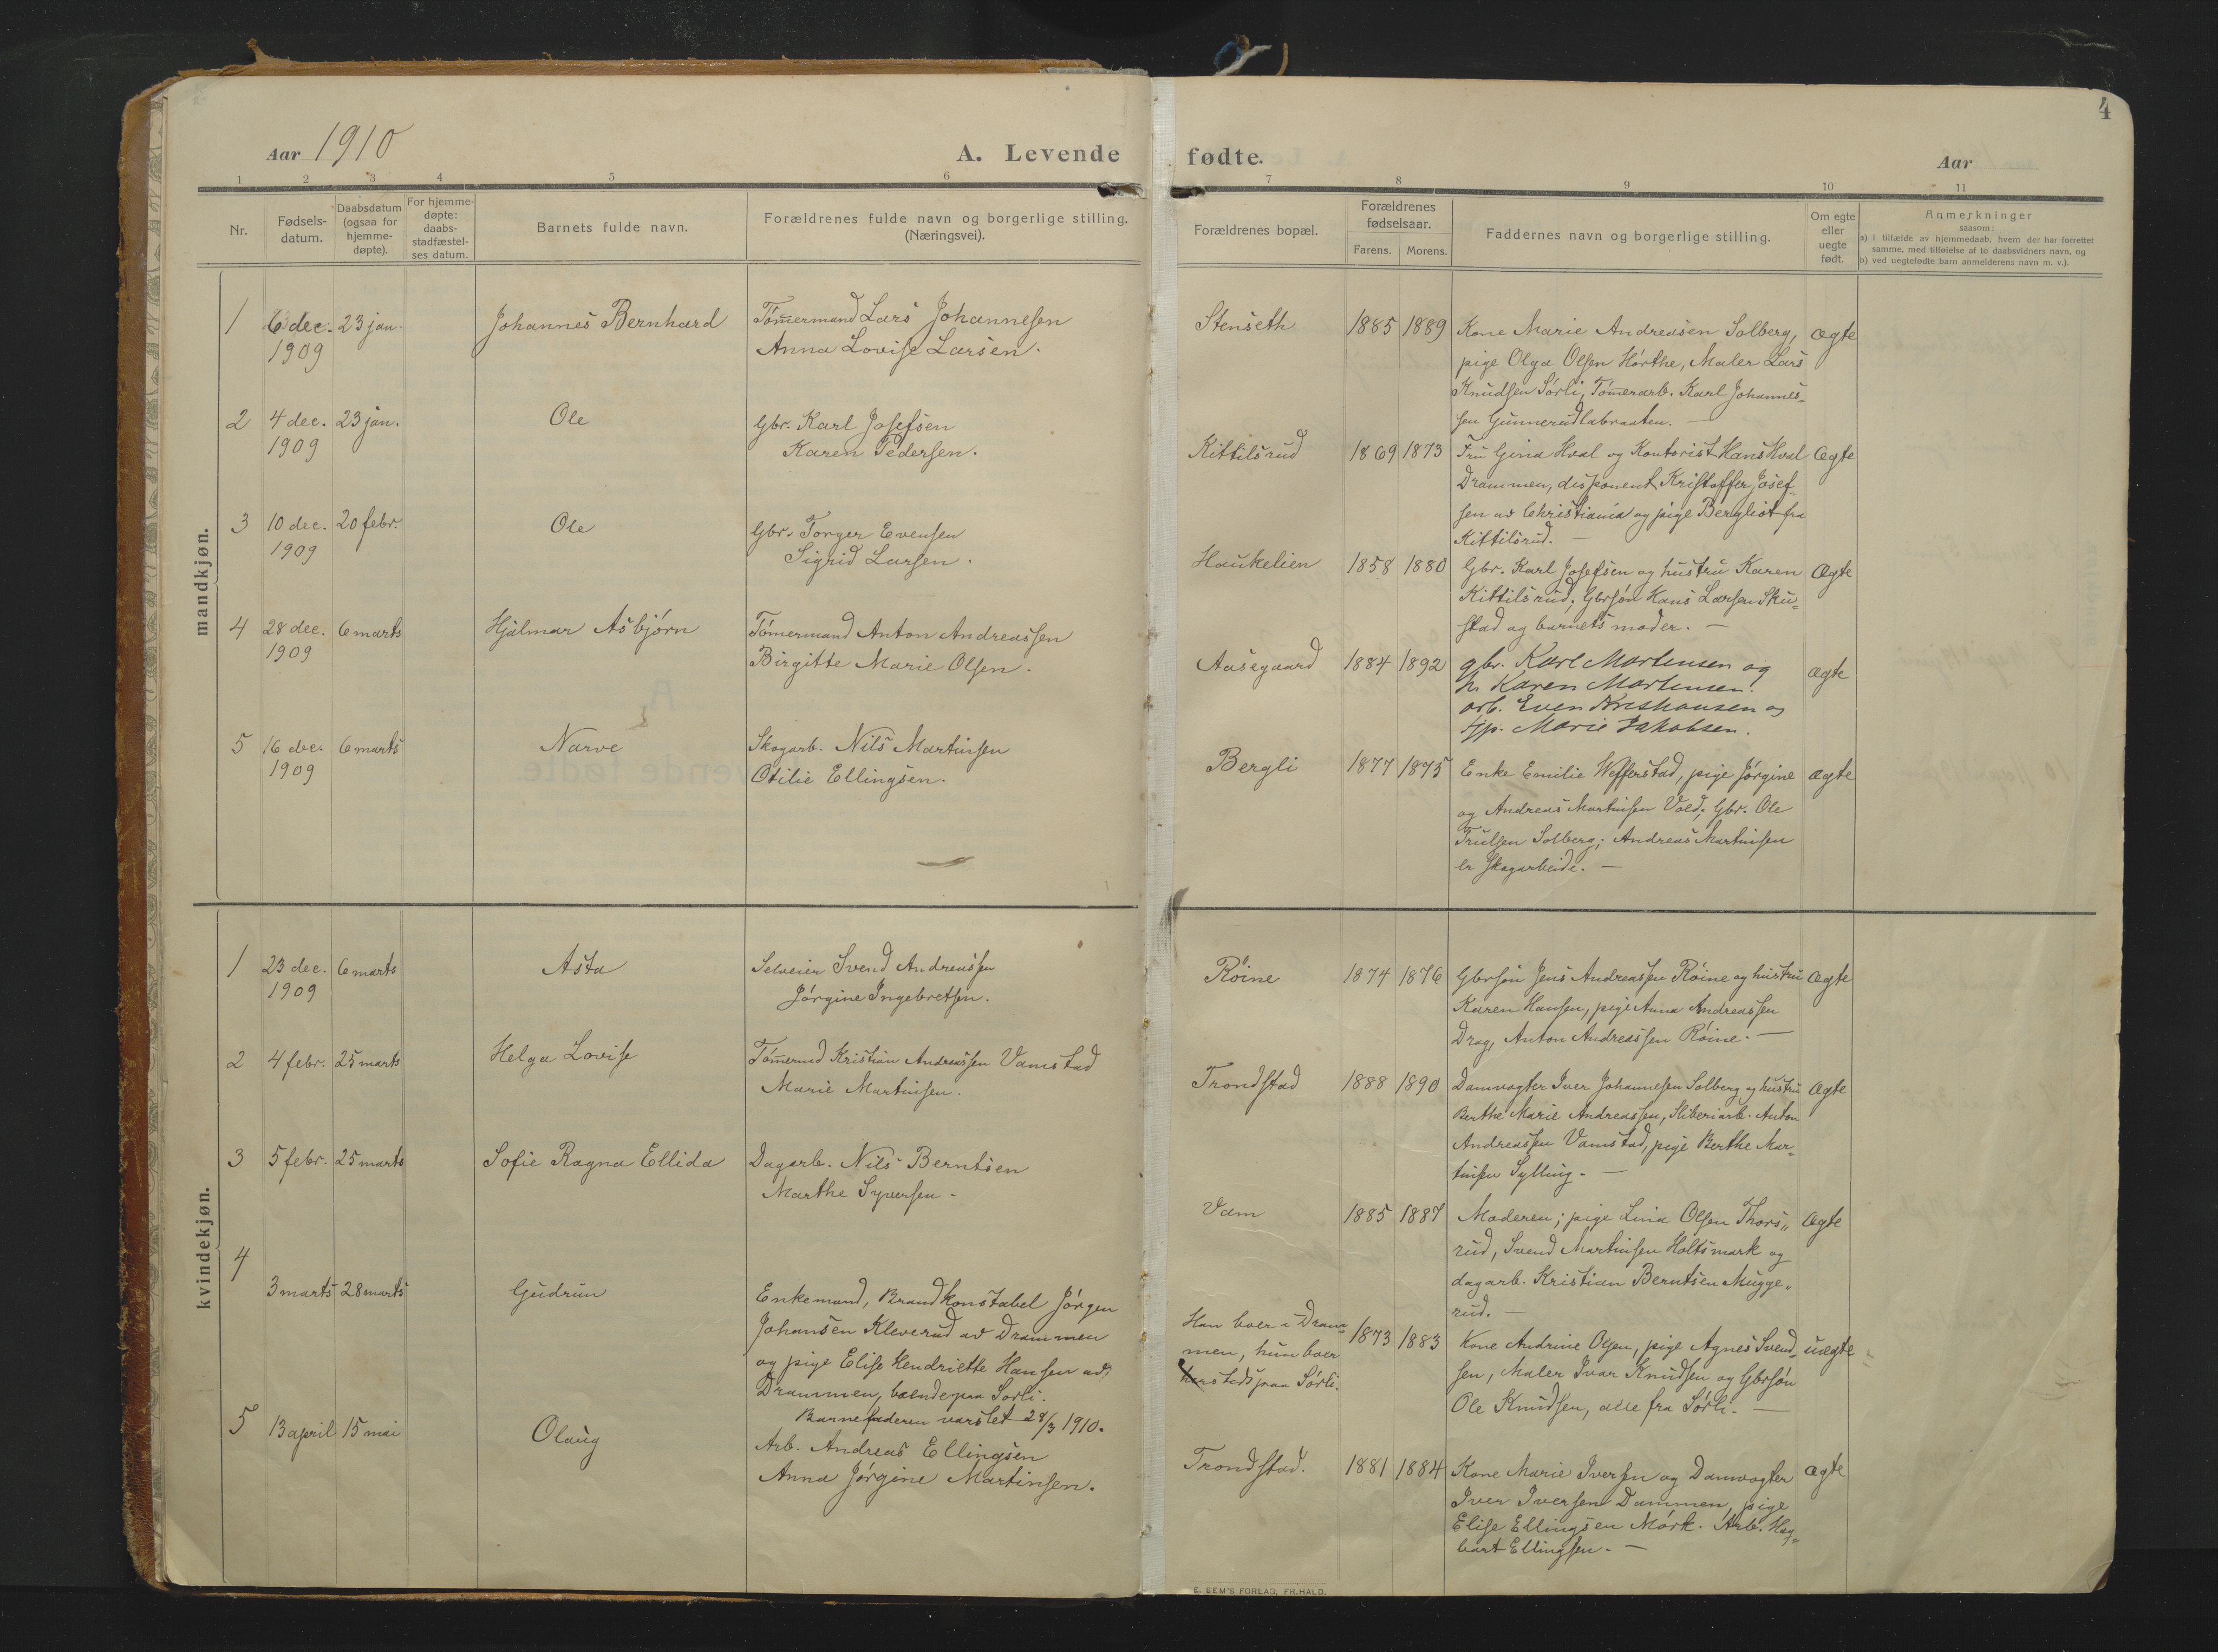 Aar 1910
A. Levende
1 2 3 4 5 6
Nr.
Fødsels-
datum.
Daabsdatum
(ogsaa for
hjemme-
døpte).
For hjemme-
døpte:
daabs-
stadfæstel-
ses datum.
Barnets fulde navn.
Forældrenes fulde navn og borgerlige stilling.
(Næringsvei).
mandkjøn.
1 6 dec. 23 jan. Johannes Bernhard Tømermand Lars Johannesen
1909 Anna Lovise Larsen.
2 4 dec. 23 jan. Ole Gbr. Karl Josefsen
1909 Karen Pedersen.
3 10 dec. 20 febr. Ole Gbr. Torger Evensen
1909 Sigrid Larsen.
4 28 dec. 6 marts Hjalmar Asbjørn Tømermand Anton Andreassen
1909 Birgitte Marie Olsen.
5 16 dec. 6 marts Narve Skogarb. Nils Martinsen
1909 Otilie Ellingsen.
kvindekjøn.
1 23 dec. 6 marts Asta Selveier Svend Andreassen
1909 Jørgine Ingebretsen.
2 4 febr. 25 marts Helga Lovise Tømermd Kristian Andreassen Vamstad
Marie Martinsen.
3 5 febr. 25 marts Sofie Ragna Ellida Dagarb. Nils Berntsen
Marthe Syversen -
4
3 marts 28 marts Gudrun Enkemand, Brandkonstabel Jørgen
Johansen Kleverud av Drammen
og pige Elise Hendriette Hansen av
Drammen, boende paa Sørli.
Barnefaderen varslet 28/3 1910.
5 13 april 15 mai Olaug Arb. Andreas Ellingsen
Anna Jørgine Martinsen.
4
fødte.
Aar
7 8 9 10 11
Forældrenes bopæl.
Forældrenes
fødselsaar.
Farens. Morens.
Faddernes navn og borgerlige stilling.
Om egte
eller
uegte
født.
Anmerkninger
saasom:
a) i tilfælde av hjemmedaab, hvem der har forrettet
samme, med tilføielse af to daabsvidners navn, og
b) ved uegtefødte barn anmelderens navn m. v.).
Stenseth 1885 1889 Kone Marie Andreasen Solberg, ægte
pige Olga Olsen Hørthe, Maler Lars
Knudsen Sørli, Tømerarb. Karl Johannes-
sen Gunnerudlabraaten. -
Kittilsrud 1869 1873 Fru Gina Hval og Kontorist Hans Hval ægte
Drammen, disponent Kristoffer Josef-
sen av Christiania og pige Bergliot fra
Kittilsrud. -
Haukelien 1858 1880 Gbr. Karl Josefsen og hustru Karen ægte
Kittilsrud; Gbrsøn Hans Larsen Sku-
stad og barnets moder. -
Aasegaard 1884 1892 gbr. Karl Martinsen og ægte
h. Karen Martinsen.
arb. Even Kristiansen og
tjp. Marie Jakobsen.
Bergli 1877 1875 Enke Emilie Wefferstad, pige Jørgine ægte
og Andreas Martinsen Vold; Gbr. Ole
Trulsen Solberg; Andreas Martinsen
er skogarbeide. -
Røine 1874 1876 Gbrsøn Jens Andreassen Røine og hustru ægte
Karen Hansen, pige Anna Andreassen
Drag, Anton Andreassen Røine. -
Trondstad 1888 1890 Damvogter Iver Johannesen Solberg og hustru ægte
Berthe Marie Andreassen, Sliberiarb. Anton
Andreassen Vamstad, pige Berthe Mar-
tinsen Sylling. -
Vam 1885 1887 Moderen; pige Lina Olsen Thors- ægte
rud, Svend Martinsen Holtsmark og
dagarb. Kristian Berntsen Mugge-
rud. -
Han boer i Dram- 1873 1883 Kone Andrine Olsen, pige Agnes Svend- uægte
men, hun boer sen, Maler Ivar Knudsen og Gbrsøn
herstedspaa Sørli. Ole Knudsen, alle fra Sørli. -
Trondstad. 1881 1884 Kone Marie Iversen og Damvogter ægte
Iver Iversen Dammen, pige
Elise Ellingsen Mørk. Arb. Hag-
bart Ellingsen. -
E. SEM'S FORLAG, FR.HALD.